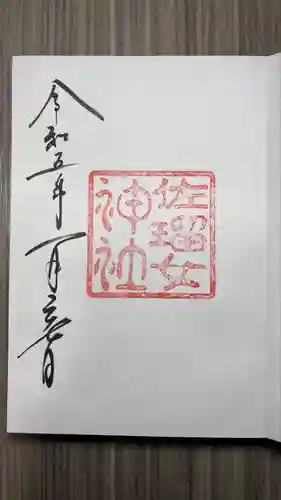 佐瑠女
神社
令和五年一月日